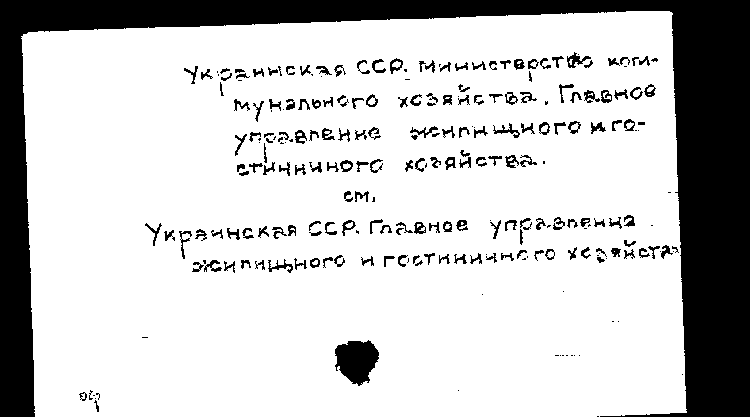 Украинская ССР. Министерство ком-
мунального хозяйства. Главное
управление жилищного и го-
стиничного хозяйства.
см.
Украинская ССР. Главное управление
жилищного и гостиничного хозяйства